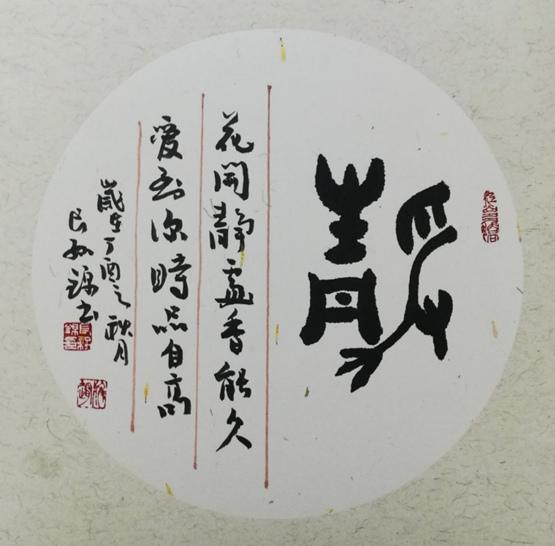 靜
花開靜處香能久
愛到深時品自高
歲在丁酉之秋月
良錦书